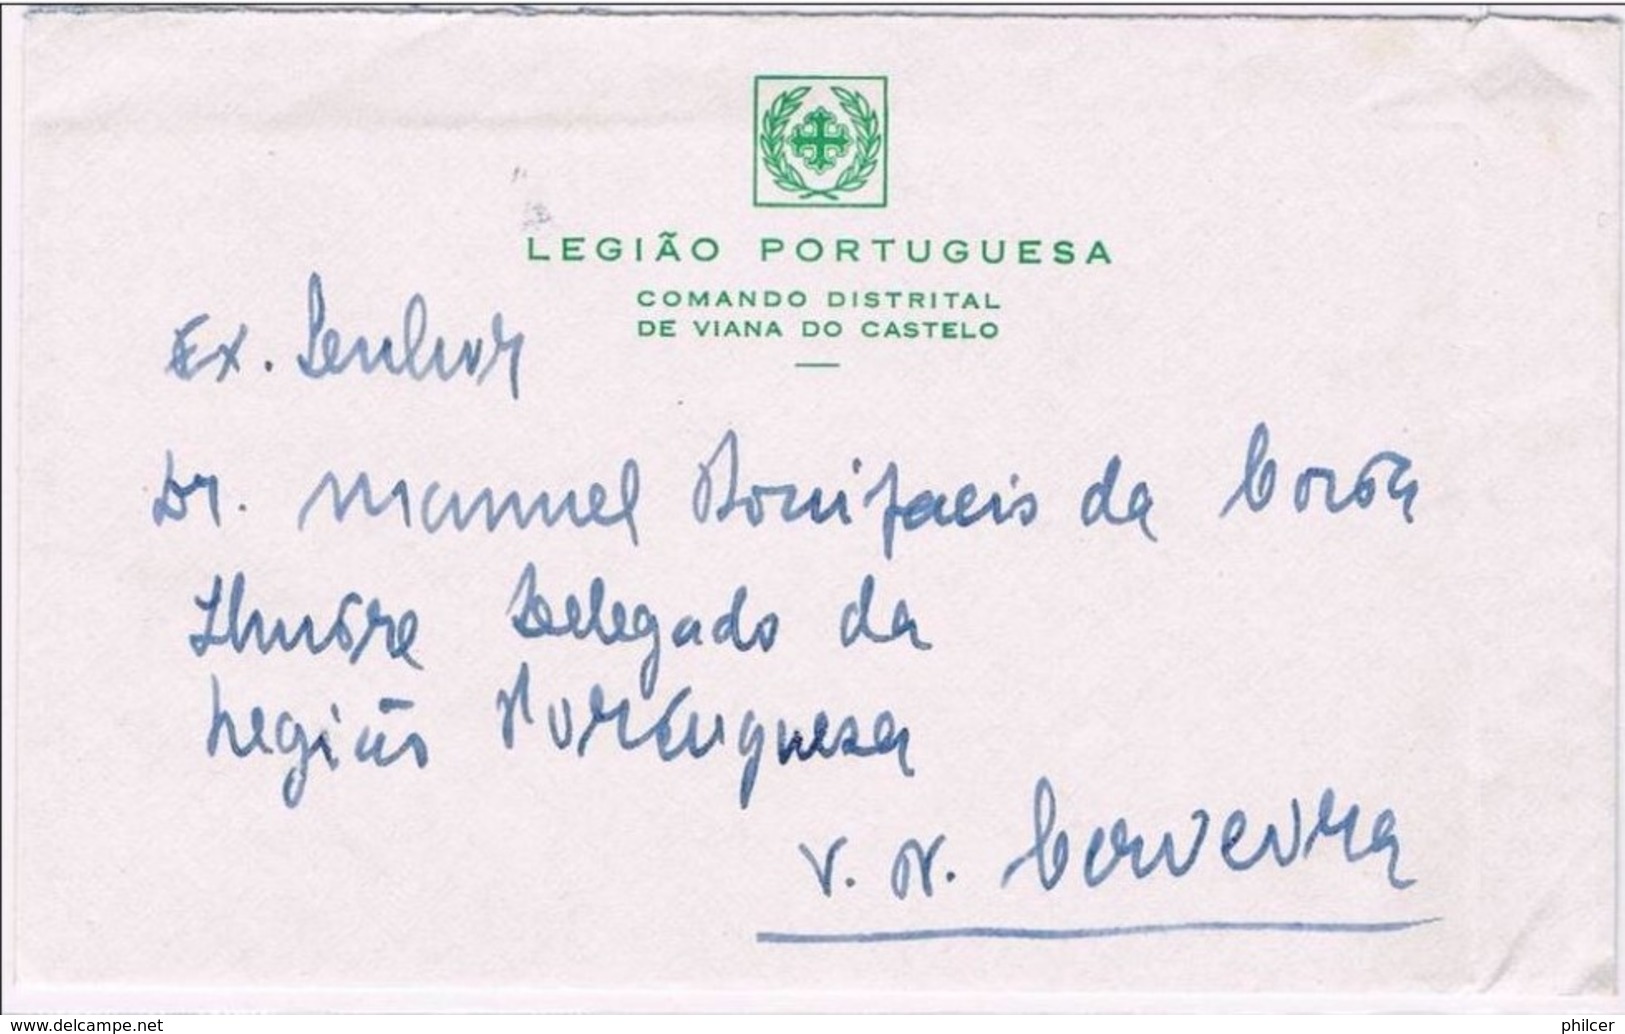 LEGIÃO PORTUGUESA
COMANDO DISTRITAL
DE VIANA DO CASTELO
Ex. Senhor
Dr. Manuel Bonifacio da
Ilustre Delegado da
Legião Portuguesa
V. N. Cerveira
www.delcampe.net
philcer